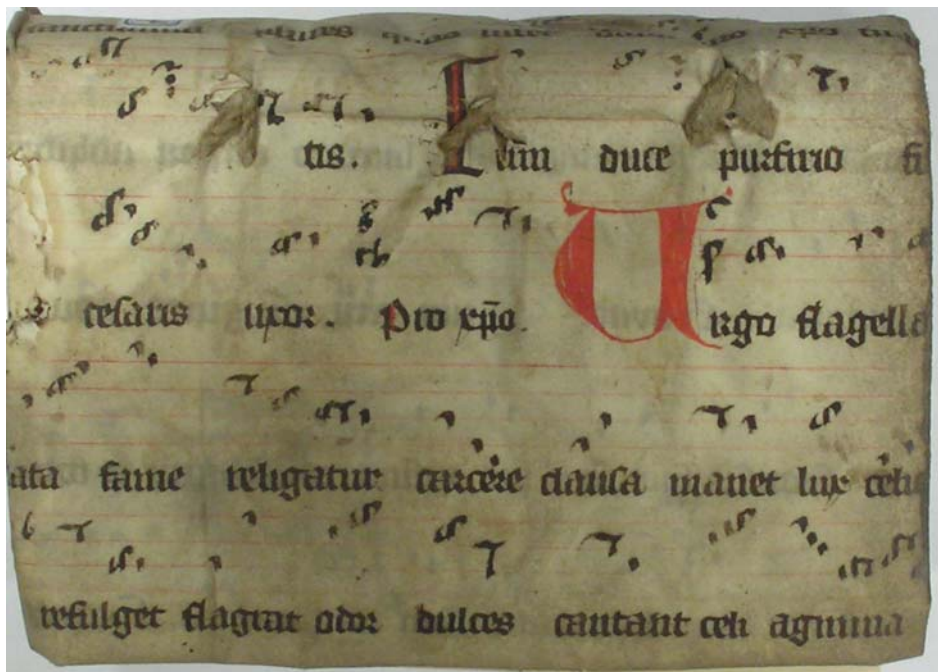 tis. Cum duce purfirio
cesaris uxor. Pro xp̄o. Uirgo flagella
ata fame religatur carcere clausa manet lux celi
refulget flagrat odor dulces cantant celi agmina